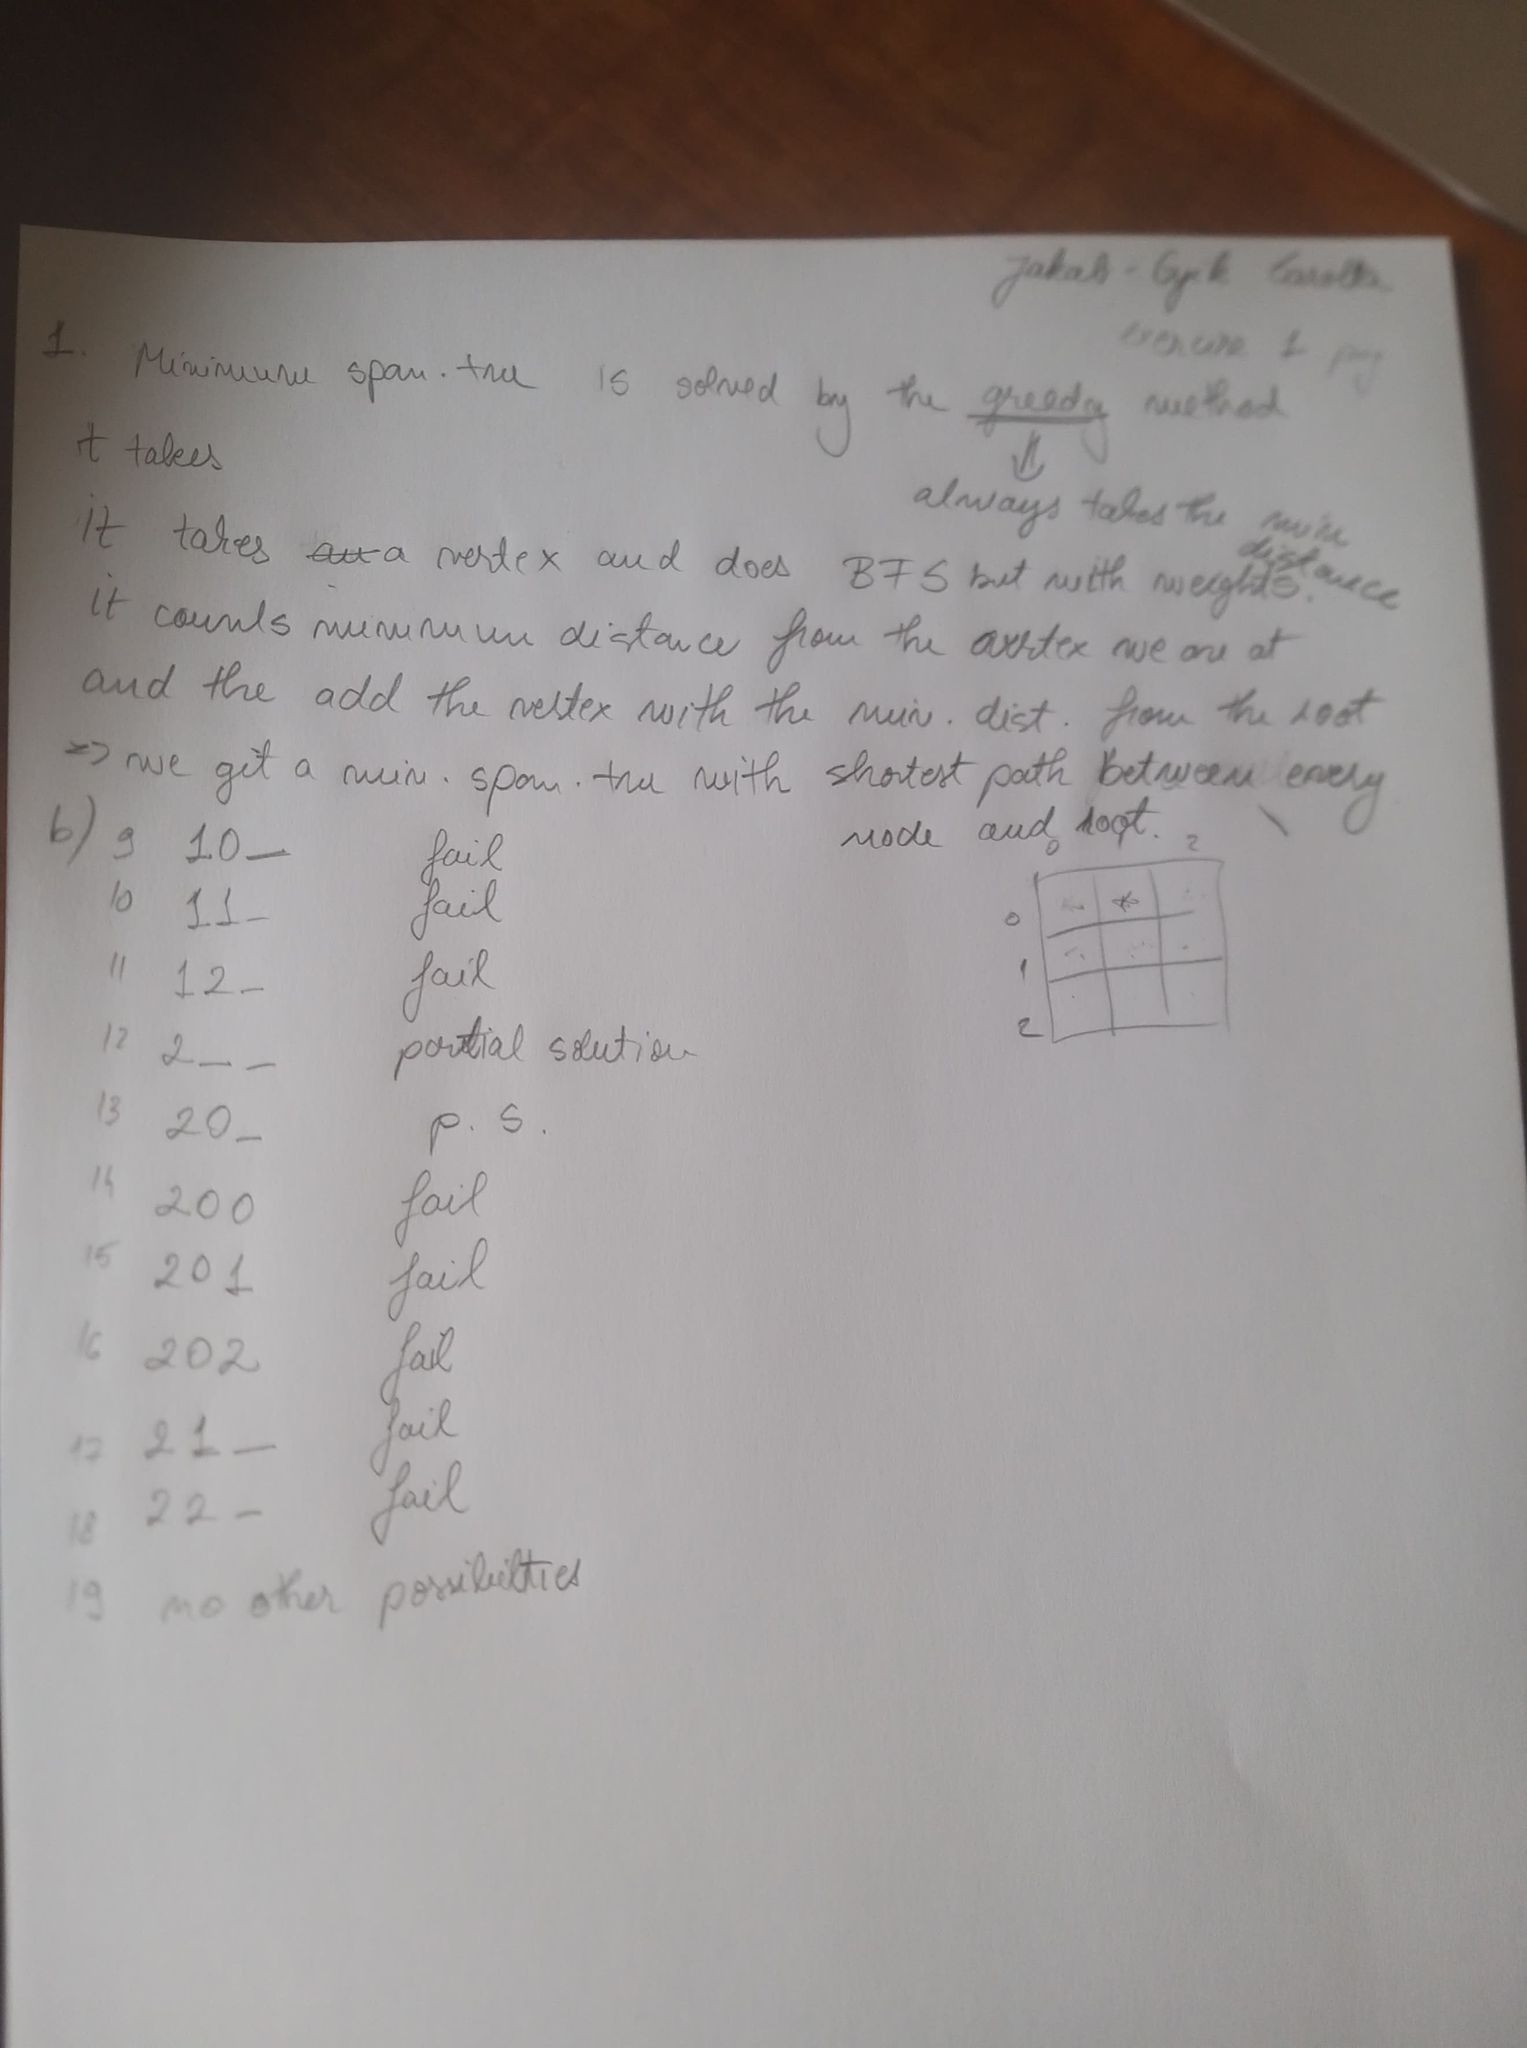 Jakab - Gyik
exercise 1
1. Minimum span. tree is solved by the greedy method
⇓
always takes the min
distance
it takes
it takes an a vertex and does BFS but with weights.
it counts minimum distance from the vertex we are at
and the add the vertex with the min. dist. from the root
=> we get a min. span. tree with shortest path between every
node and root.
b) 9 10_ fail
10 11_ fail
11 12_ fail
12 2__ partial solution
13 20_ p. s.
14 200 fail
15 201 fail
16 202 fail
17 21_ fail
18 22_ fail
19 no other possibilties
0 2
0 * *
1
2